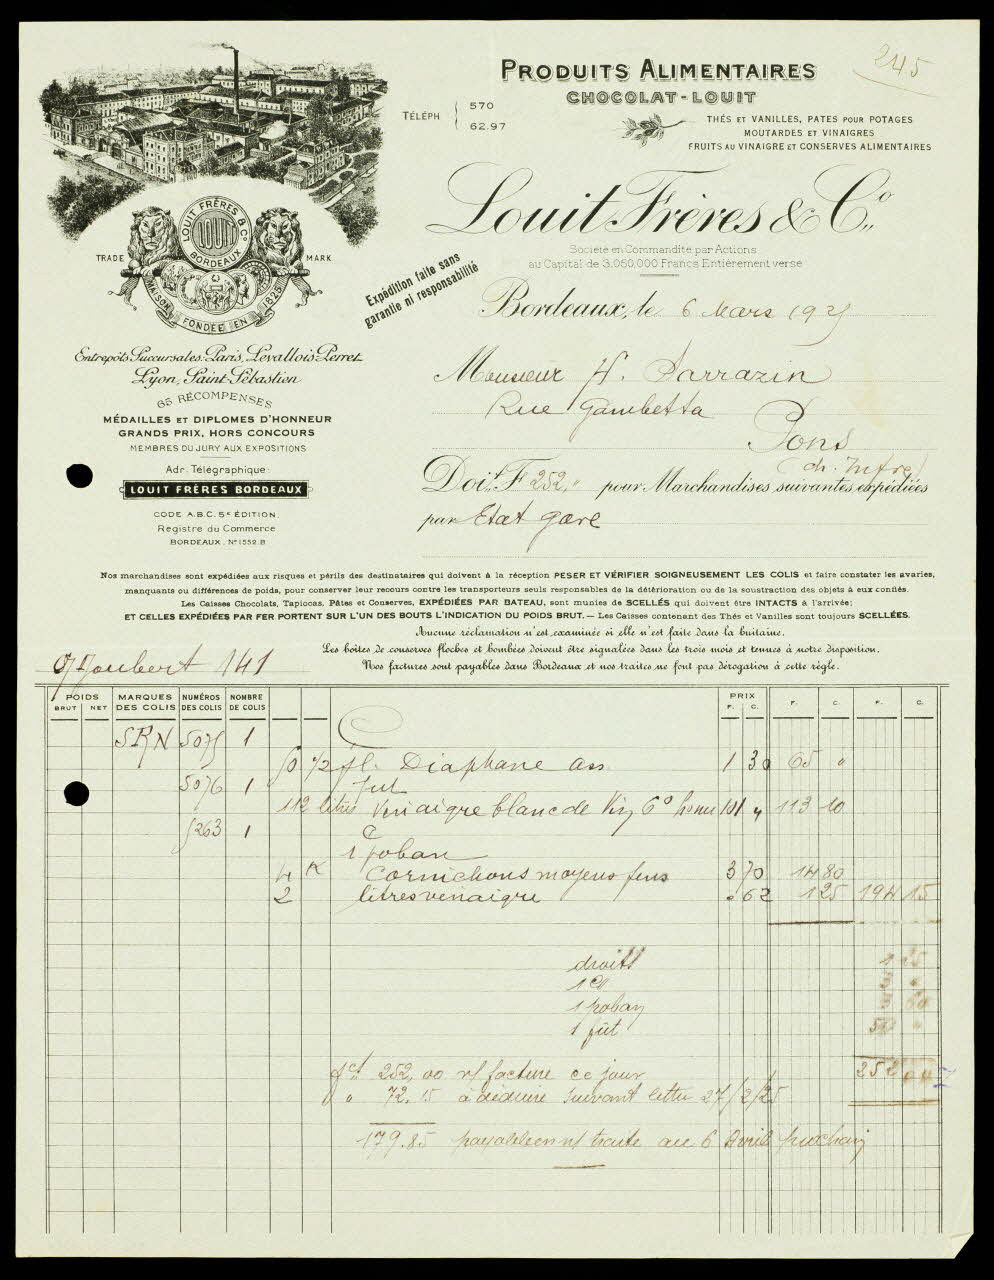 245
PRODUITS ALIMENTAIRES
CHOCOLAT-LOUIT
TÉLÉPH { 570
62.97
THÉS ET VANILLES, PATES POUR POTAGES
MOUTARDES ET VINAIGRES
FRUITS AU VINAIGRE ET CONSERVES ALIMENTAIRES
Louit Frères & Cº
Société en Commandite par Actions
au Capital de 3.050,000 Francs Entièrement versé
LOUIT FRÈRES & Cº
LOUIT
BORDEAUX
TRADE MARK
MAISON FONDÉE EN 1825
Expédition faite sans
garantie ni responsabilité
Bordeaux, le 6 Mars 1925
Entrepôts Succursales: Paris, Levallois-Perret
Lyon, Saint-Sébastien
65 RÉCOMPENSES
MÉDAILLES ET DIPLOMES D'HONNEUR
GRANDS PRIX, HORS CONCOURS
MEMBRES DU JURY AUX EXPOSITIONS
Adr. Télégraphique:
LOUIT FRÈRES BORDEAUX
CODE A.B.C. 5e ÉDITION
Registre du Commerce
BORDEAUX. Nº 1552 B
Monsieur H. Sarrazin
Rue Gambetta
Pons
Ch. Infre
Doit F 252, " pour Marchandises suivantes expédiées
par Etat gare
Nos marchandises sont expédiées aux risques et périls des destinataires qui doivent à la réception PESER ET VÉRIFIER SOIGNEUSEMENT LES COLIS et faire constater les avaries,
manquants ou différences de poids, pour conserver leur recours contre les transporteurs seuls responsables de la détérioration ou de la soustraction des objets à eux confiés.
Les Caisses Chocolats, Tapiocas, Pâtes et Conserves, EXPÉDIÉES PAR BATEAU, sont munies de SCELLÉS qui doivent être INTACTS à l'arrivée;
ET CELLES EXPÉDIÉES PAR FER PORTENT SUR L'UN DES BOUTS L'INDICATION DU POIDS BRUT. — Les Caisses contenant des Thés et Vanilles sont toujours SCELLÉES.
Aucune réclamation n'est examinée si elle n'est faite dans la huitaine.
Les boîtes de conserves floches et bombées doivent être signalées dans les trois mois et tenues à notre disposition.
Nos factures sont payables dans Bordeaux et nos traites ne font pas dérogation à cette règle.
Joubert 141
POIDS BRUT NET MARQUES DES COLIS NUMÉROS DES COLIS NOMBRE DE COLIS PRIX F. C. F. C. F. C.
SRN 5075 1 C
50 1/2 fl. Diaphane ass 1 30 65 "
5076 1 fut
112 litres Vinaigre blanc de Vin 6º 101 " 113 10
5263 1 C
1 poban
4 K Cornichons moyens fins 3 70 14 80
2 litres vinaigre " 62 1 25 194 15
droits 1 25
1 Ce
1 poban
1 fût 50 "
252 00
252,00 n/ facture ce jour
" 72,15 à déduire suivant lettre 27/2/25
179.85 payable en n/ traite au 6 Avril prochain